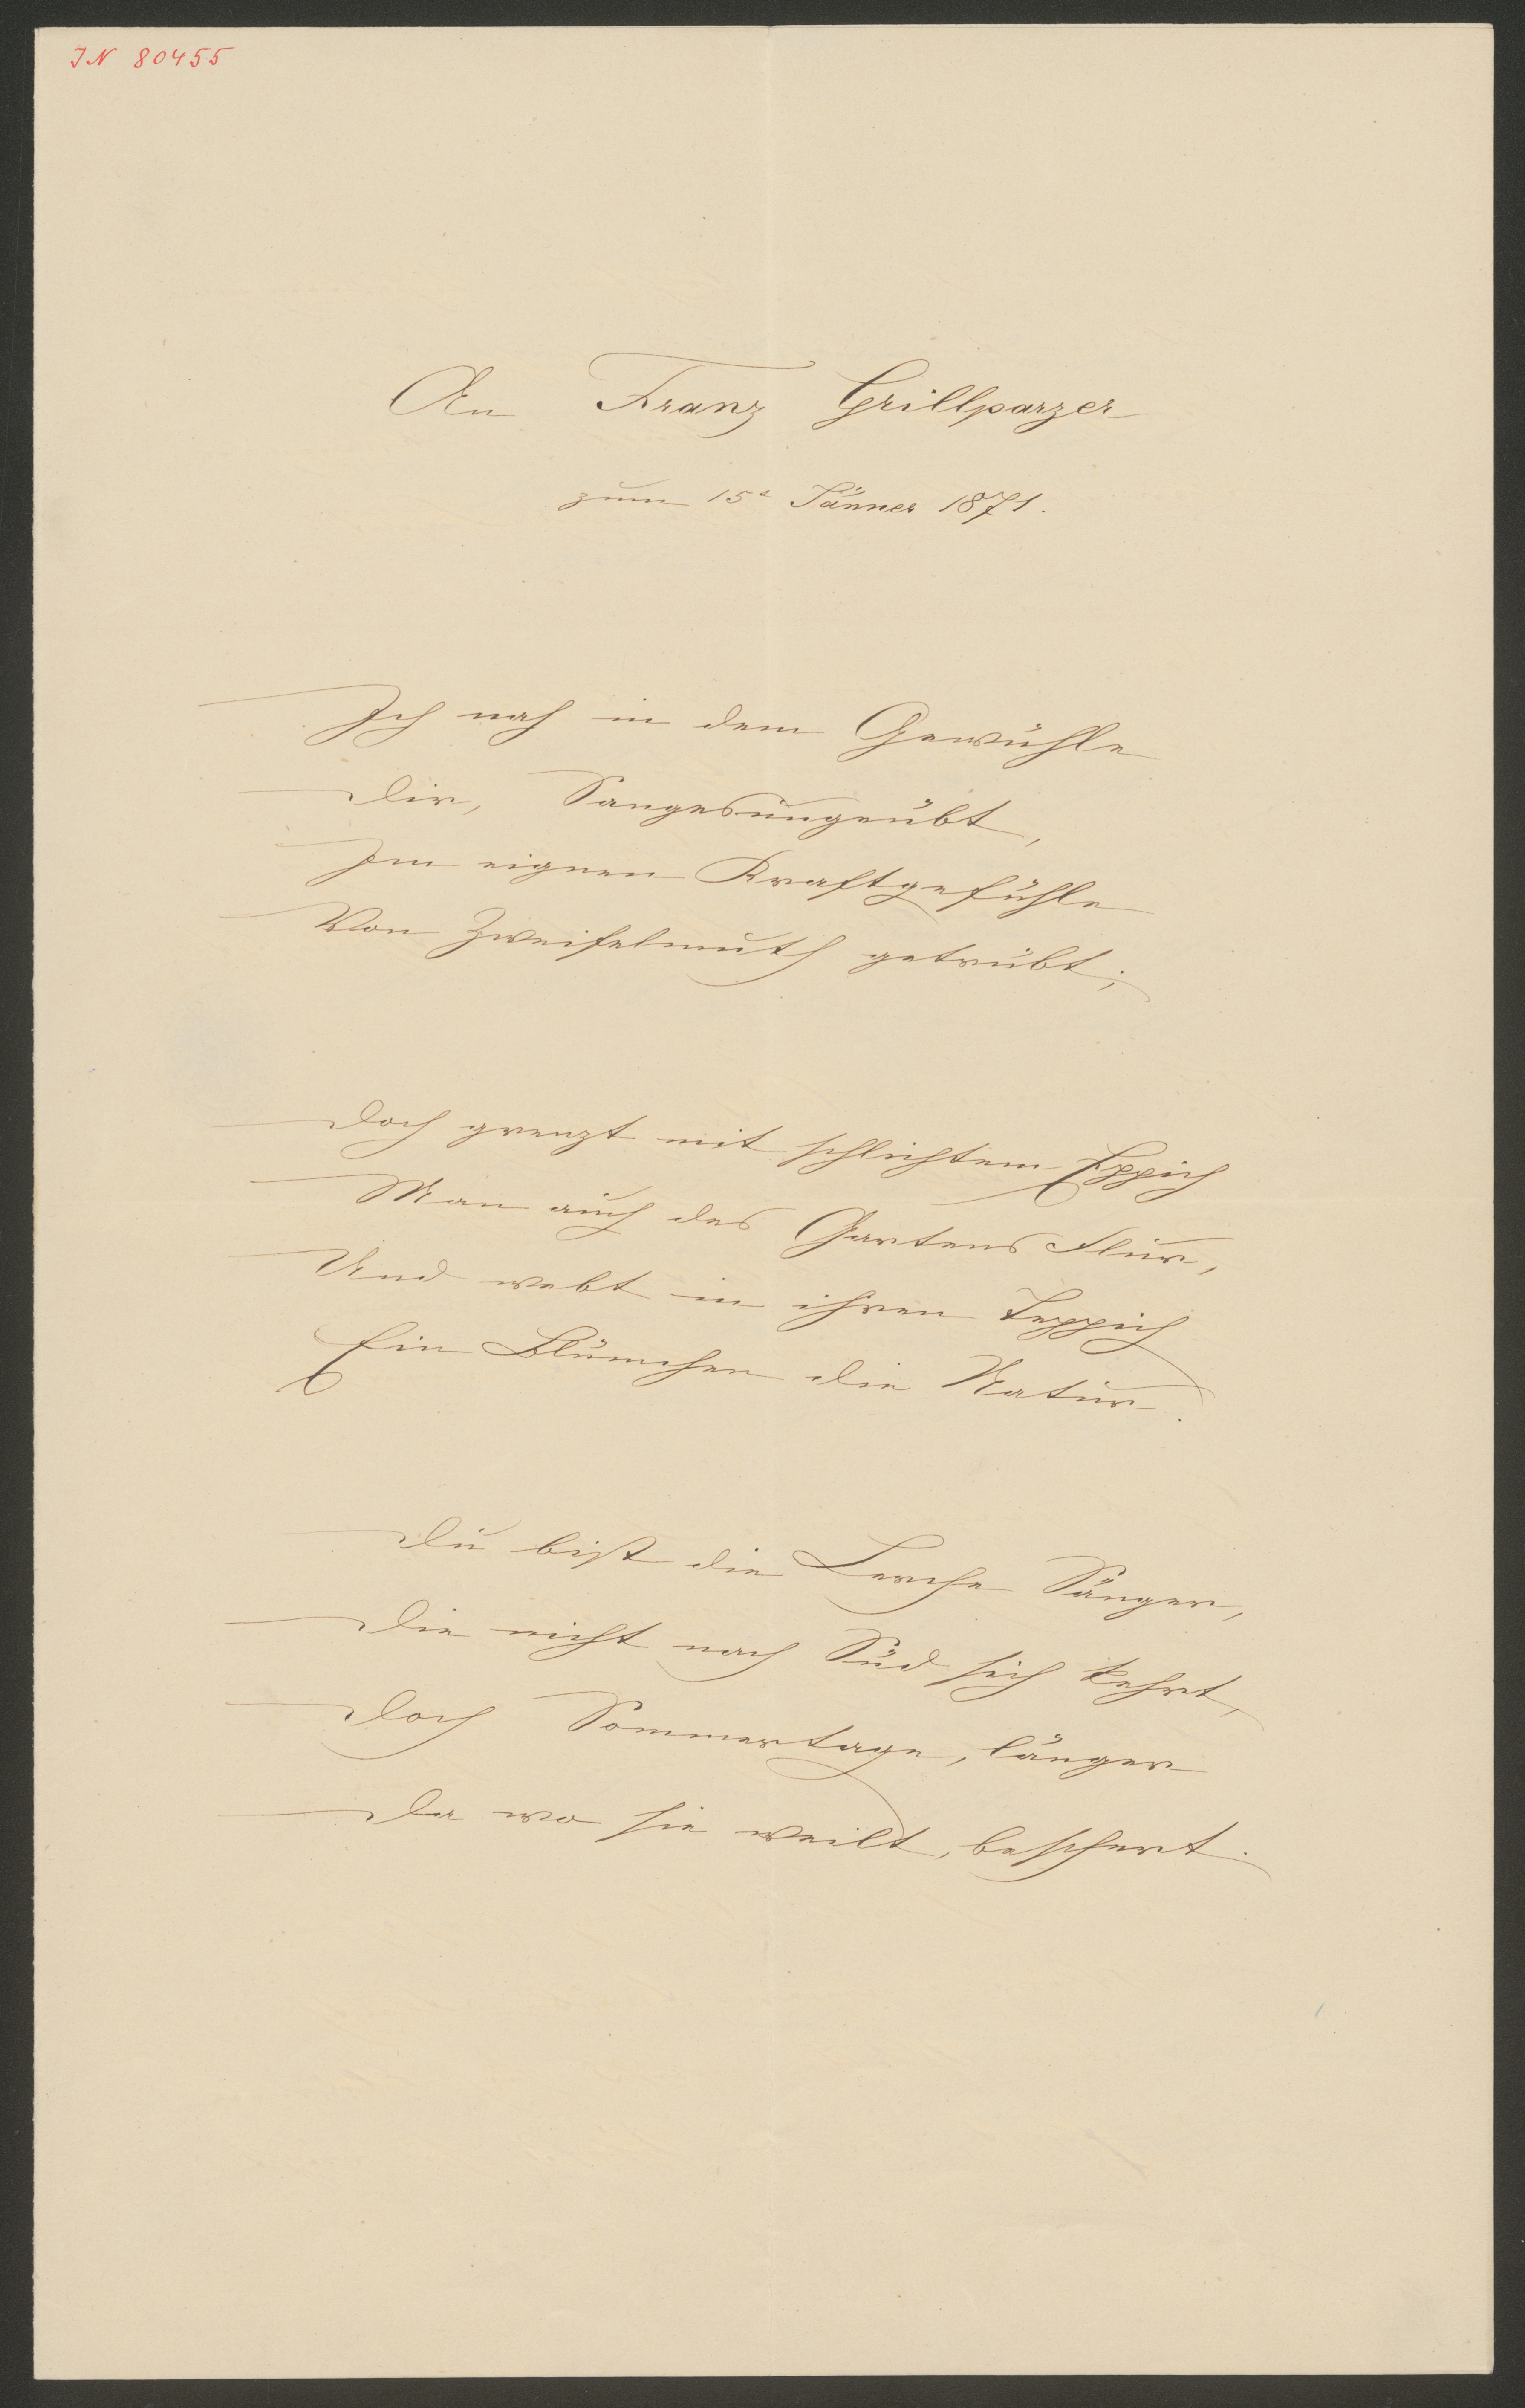 IN 80455
An Franz Grillparzer
zum 15t Jänner 1871.
Ich nah in dem Gewühle
Dir, Sangesungeübt,
Im eignen Kraftgefühle
Von Zweifelmuth getrübt;
Doch grenzt mit schlichtem Eppich
Man auch des Gartens Flur,
Und webt in ihren Teppich
Ein Blümchen die Natur.
Du bist die Lerche Sänger,
Die nicht nach Süd sich kehrt,
Doch Sommertage, länger
Da wo sie weilt, beschert.